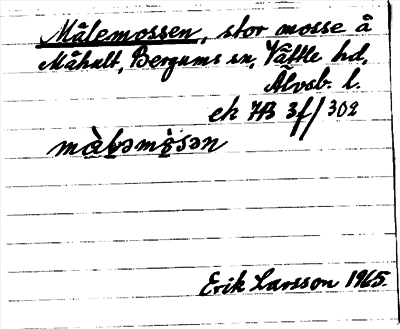 Målemossen, stor mosse å
Måhult, Bergums sn, Vättle hd,
Älvsb. l.
ek 7B 3f/302
màḷəmò̤sən
Erik Larsson 1965.